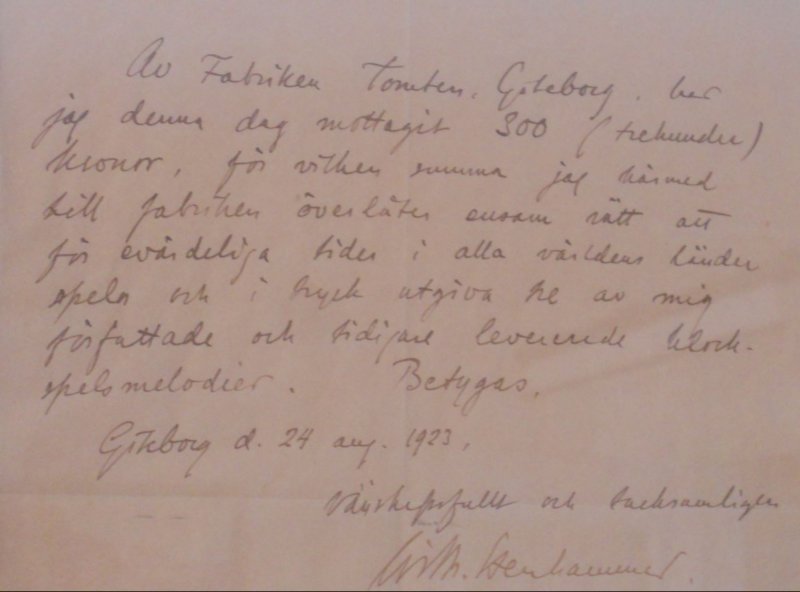 Av Fabriken Tomten, Göteborg, har
jag denna dag mottagit 300 (trehundra)
kronor, för vilken summa jag härmed
till fabriken överlåter ensam rätt att
för evärdeliga tider i alla världens länder
spela och i tryck utgiva tre av mig
författade och tidigare levererade klock-
spelsmelodier. Betygas.
Göteborg d. 24 aug. 1923.
Vänskapsfullt och tacksamligen
Wilh. Stenhammar.